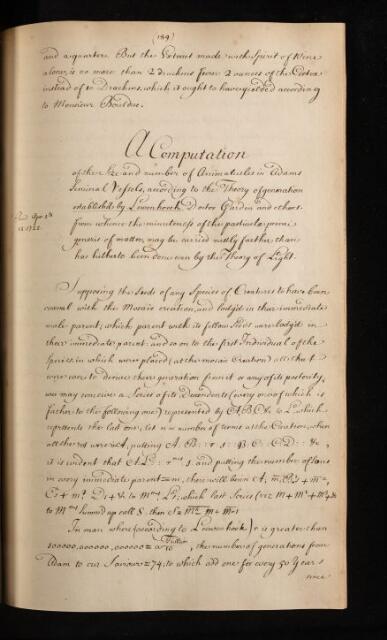 (189)
and a quarter. But the Extract made with Spirit of Wine
alone, is no more than 2 drachms from 2 ounces of the Cortex
instead of 10 Drachms, which it ought to have yielded according
to Monsieur Bouldue.
A Computation
of the Size and number of Animalcules in Adams
Seminal Vessels, according to the Theory of generation
established by Lewenhoeck, Doctor Garden and others.
From whence the minuteness of the particles
of matter may be carried vastly farther than
has hitherto been done even by the Theory of Light.
Supposing the Seeds of any Species of Creatures to have been
coeval with the Mosaic creation, and lodg'd in their immediate
male parent; which parent with its fellow Seeds were lodg'd in
their immediate parent: and so on to the first Individual of the
Species, in which were placed (at the mosaic Creation) all that
were ever to derive their generation from it or any of its posterity,
we may conceive a Series of its Descendents (every one of which is
father to the following one) represented by A B C &c to L which
represents the last one; let n = number of terms at the Creation, when
all the rest were in A, putting A. B :: r. 1 :: B. C :: C. D :: &c
it is evident that A. L ::
in every immediate parent = m, there will been A,
to summ'd up call S. then S =
In man where (according to Leewenhoek) r is greater than
100000,000000,000000 = a Fuller, the number of generations from
Adam to our Saviour = 74; to which add one for every 30 Years
since